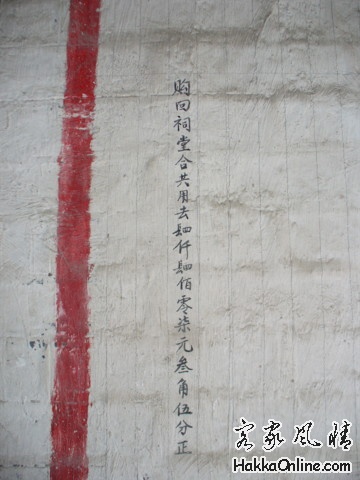 購回祠堂合共用去肆仟肆佰零柒元叁角伍分正
客家風情
HakkaOnline.com